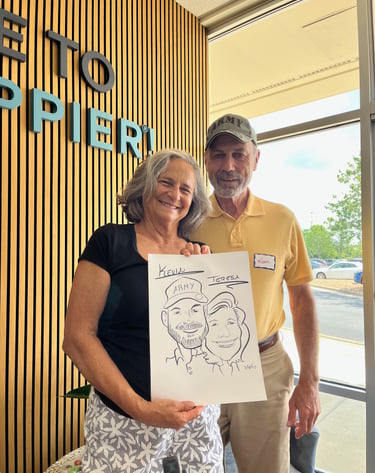 E TO
PPIER!
ARMY
KEVIN
TERESA
ARMY